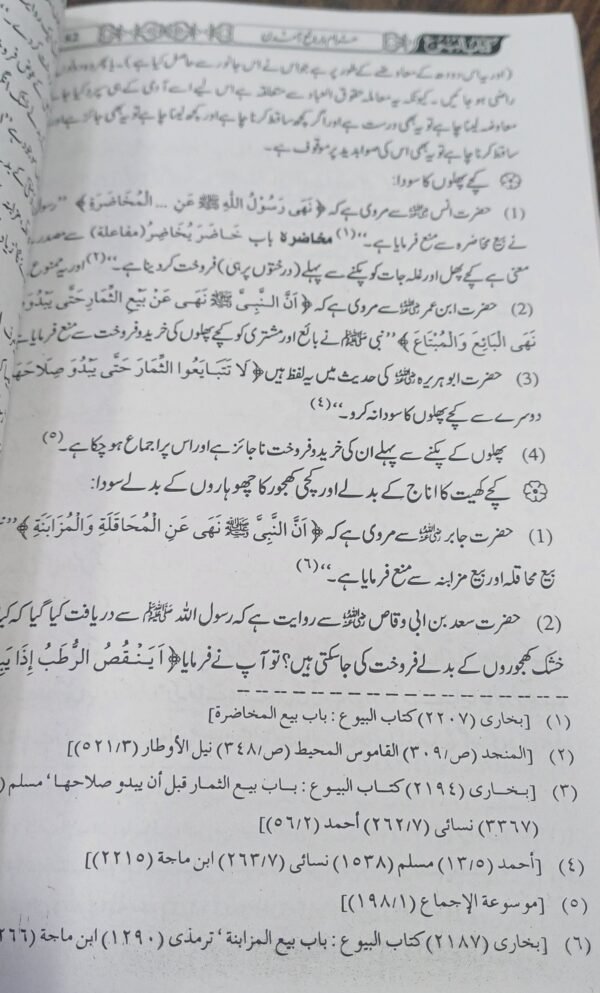 کتاب البیوع
62
(اور یہ اس دودھ کے معاوضے کے طور پر ہے جو اس نے اس جانور سے حاصل کیا ہے)۔ یا پھر وہ
راضی ہو جائیں۔ کیونکہ یہ معاملہ حقوق العباد سے متعلقہ ہے اس لیے اسے آدمی کے ہی سپرد کیا جائے
معاوضہ لینا چاہے تو یہ بھی درست ہے اور اگر کچھ ساقط کرنا چاہے اور کچھ لینا چاہے تو یہ بھی جائز ہے اور
ساقط کرنا چاہے تو یہ بھی اس کی صوابدید پر موقوف ہے۔
کچے پھلوں کا سودا:
(1) حضرت انس رضی اللہ عنہ سے مروی ہے کہ ﴿ نَهَى رَسُوْلُ اللهِ ﷺ عَنِ ... الْمُخَاضَرَةِ ﴾ ''رسول
نے بیع مخاضرہ سے منع فرمایا ہے۔'' (۱) مخاضرہ باب خَاضَرَ يُخَاضِرُ (مفاعلة) سے مصدر
معنی ہے کچے پھل اور غلہ جات کو پکنے سے پہلے (درختوں پر ہی) فروخت کر دینا ہے۔'' (۲) اور یہ ممنوع
(2) حضرت ابن عمر رضی اللہ عنہ سے مروی ہے کہ ﴿ اَنَّ النَّبِيَّ ﷺ نَهَى عَنْ بَيْعِ الثِّمَارِ حَتَّى يَبْدُوَ
نَهَى الْبَائِعَ وَالْمُبْتَاعَ ﴾ ''نبی ﷺ نے بائع اور مشتری کو کچے پھلوں کی خرید و فروخت سے منع فرمایا ہے
(3) حضرت ابو ہریرہ رضی اللہ عنہ کی حدیث میں یہ لفظ ہیں ﴿ لَا تَتَبَايَعُوا الثِّمَارَ حَتَّى يَبْدُوَ صَلَاحُهَا
دوسرے سے کچے پھلوں کا سودا نہ کرو۔'' (٤)
(4) پھلوں کے پکنے سے پہلے ان کی خرید و فروخت ناجائز ہے اور اس پر اجماع ہو چکا ہے۔ (٥)
کچے کھیت کا اناج کے بدلے اور کچی کھجور کا چھوہاروں کے بدلے سودا:
(1) حضرت جابر رضی اللہ عنہ سے مروی ہے کہ ﴿ اَنَّ النَّبِيَّ ﷺ نَهَى عَنِ الْمُحَاقَلَةِ وَالْمُزَابَنَةِ ﴾
بیع محاقلہ اور بیع مزابنہ سے منع فرمایا ہے۔'' (٦)
(2) حضرت سعد بن ابی وقاص رضی اللہ عنہ سے روایت ہے کہ رسول اللہ ﷺ سے دریافت کیا گیا کہ
خشک کھجوروں کے بدلے فروخت کی جا سکتی ہیں؟ تو آپ نے فرمایا ﴿ اَيَنْقُصُ الرُّطَبُ إِذَا
(۱) [بخاری (۲۲۰۷) کتاب البیوع : باب بیع المخاضرة]
(۲) [المنجد (ص/۳۰۹) القاموس المحیط (ص/۳٤۸) نیل الأوطار (۵۲۱/۳)]
(۳) [بخاری (۲۱۹٤) کتاب البیوع : باب بیع الثمار قبل أن یبدو صلاحها' مسلم
(۳۳٦۷) نسائی (۲٦۲/۷) أحمد (۵٦/۲)]
(٤) [أحمد (۱۳/۵) مسلم (۱۵۳۸) نسائی (۲٦۳/۷) ابن ماجة (۲۲۱۵)]
(۵) [موسوعة الإجماع (۱۹۸/۱)]
(٦) [بخاری (۲۱۸۷) کتاب البیوع : باب بیع المزابنة' ترمذی (۱۲۹۰) ابن ماجة (